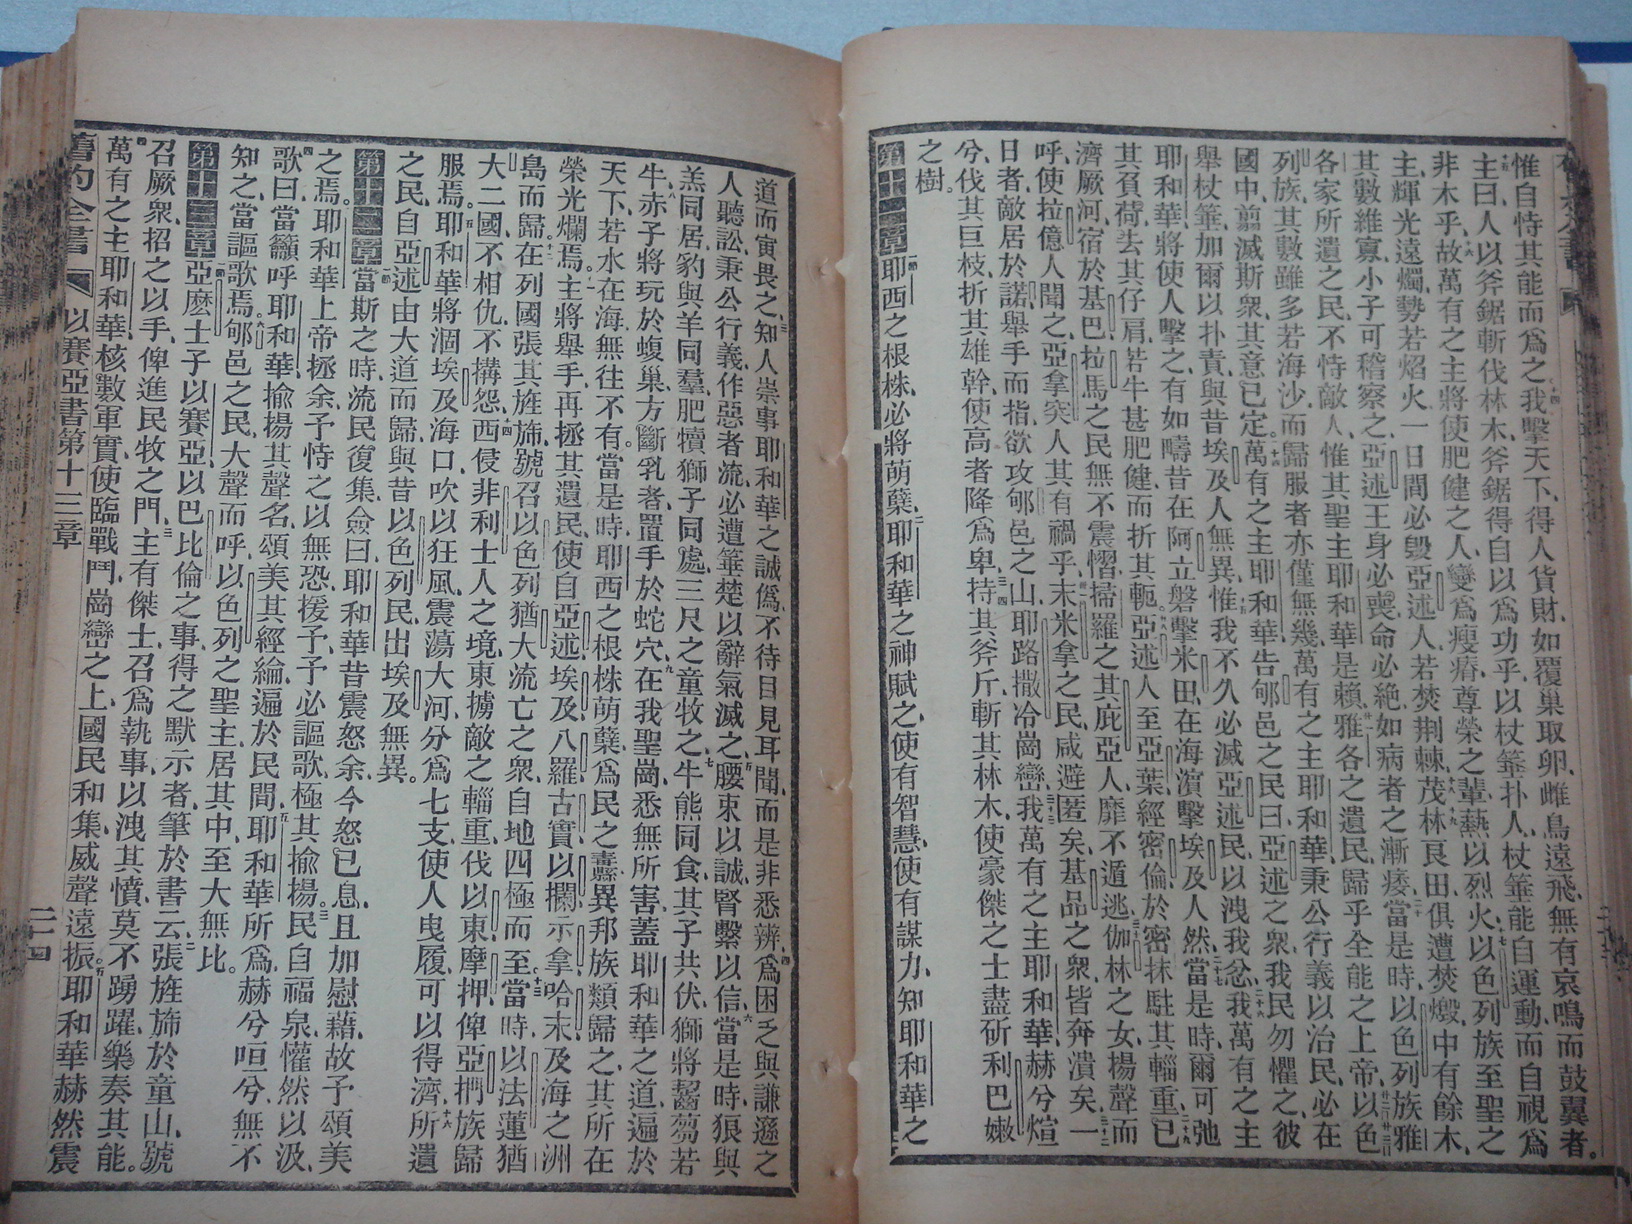 惟自恃其能而爲之十四我擊天下、得人貨財、如覆巢取卵、雌鳥遠飛、無有哀鳴而鼓翼者。
十五主曰、人以斧鋸斬伐林木、斧鋸得自以爲功乎、以杖箠扑人、杖箠能自運動、而自視爲
非木乎、十六故萬有之主、將使肥健之人、變爲瘦瘠、尊榮之輩、爇以烈火、十七以色列族至聖之
主、輝光遠燭、勢若焰火、一日間必毀亞述人、若焚荆棘、十八茂林艮田、俱遭焚燬、十九中有餘木、
其數維寡、小子可稽察之、亞述王身必喪命必絕、如病者之漸痿、二十當是時、以色列族雅
各家所遺之民、不恃敵人、惟其聖主耶和華是賴、廿一雅各之遺民、歸乎全能之上帝、廿二以色
列族、其數雖多若海沙、而歸服者亦僅無幾、萬有之主耶和華、秉公行義以治民、必在
國中、翦滅斯衆、其意已定。萬有之主耶和華告郇邑之民曰、亞述之衆、我民勿懼之、彼
舉杖箠、加爾以扑責、與昔埃及人無異、惟我不久必滅亞述民、以洩我忿、我萬有之主
耶和華、將使人擊之、有如疇昔在阿立磐擊米田、在海濱擊埃及人然、當是時、爾可弛
其負荷、去其仔肩、若牛甚肥健、而折其軛。亞述人至亞葉、經密倫、於密抹駐其輜重、已
濟厥河、宿於基巴、拉馬之民、無不震慴、掃羅之其庇亞人、靡不遁逃、伽林之女、揚聲而
呼、使拉億人聞之、亞拿突人其有禍乎、末米拿之民、咸避匿矣、基品之衆、皆奔潰矣、一
日者、敵居於諾、舉手而指、欲攻郇邑之山、耶路撒冷崗巒、我萬有之主耶和華、赫兮煊
兮、伐其巨枝、折其雄幹、使高者降爲卑、持其斧斤、斬其林木、使豪傑之士、盡斫利巴嫩
之樹。
第十一章一節耶西之根株、必將萌蘖、二耶和華之神賦之、使有智慧、使有謀力、知耶和華之
道而寅畏之、三知人崇事耶和華之誠僞、不待目見耳聞、而是非悉辨、四爲困乏與謙遜之
人聽訟、秉公行義、作惡者流、必遭箠楚、以辭氣滅之、五腰束以誠、腎繫以信、六當是時、狼與
羔同居、豹與羊同羣、肥犢獅子同處、三尺之童牧之、七牛熊同食、其子共伏、獅將齧芻若
牛、八赤子將玩於蝮巢、方斷乳者、置手於蛇穴、九在我聖崗、悉無所害、蓋耶和華之道、遍於
天下、若水在海、無往不有。十當是時、耶西之根株萌蘖、爲民之纛、異邦族類歸之、其所在
榮光爛焉。十一主將舉手、再拯其遺民、使自亞述、埃及、八羅、古實、以攔、示拿、哈末、及海之洲
島而歸、十二在列國張其旌旆、號召以色列猶大流亡之衆、自地四極而至、十三當時、以法蓮猶
大二國、不相仇、不搆怨、十四西侵非利士人之境、東擄敵之輜重、伐以東摩押、俾亞捫族歸
服焉。十五耶和華將涸埃及海口、吹以狂風、震蕩大河、分爲七支、使人曳履可以得濟、十六所遺
之民、自亞述由大道而歸、與昔以色列民出埃及無異。
第十二章一節當斯之時、流民復集、僉曰、耶和華昔震怒余、今怒已息、且加慰藉、故予頌美
之焉。二耶和華上帝拯余、予恃之以無恐、援予、予必謳歌、極其揄揚、三民自福泉、懽然以汲、
四歌曰、當籲呼耶和華、揄揚其聲名、頌美其經綸、遍於民間、五耶和華所爲、赫兮咺兮、無不
知之、當謳歌焉、六郇邑之民、大聲而呼、以色列之聖主、居其中、至大無比。
第十三章一節亞麽士子以賽亞、以巴比倫之事、得之默示者、筆於書云、二張旌旆於童山、號
召厥衆、招之以手、俾進民牧之門、三主有傑士、召爲執事、以洩其憤、莫不踴躍、樂奏其能。
四萬有之主耶和華、核數軍實、使臨戰鬥、崗巒之上、國民和集、威聲遠振、五耶和華赫然震
舊約全書 以賽亞書第十三章 二十四